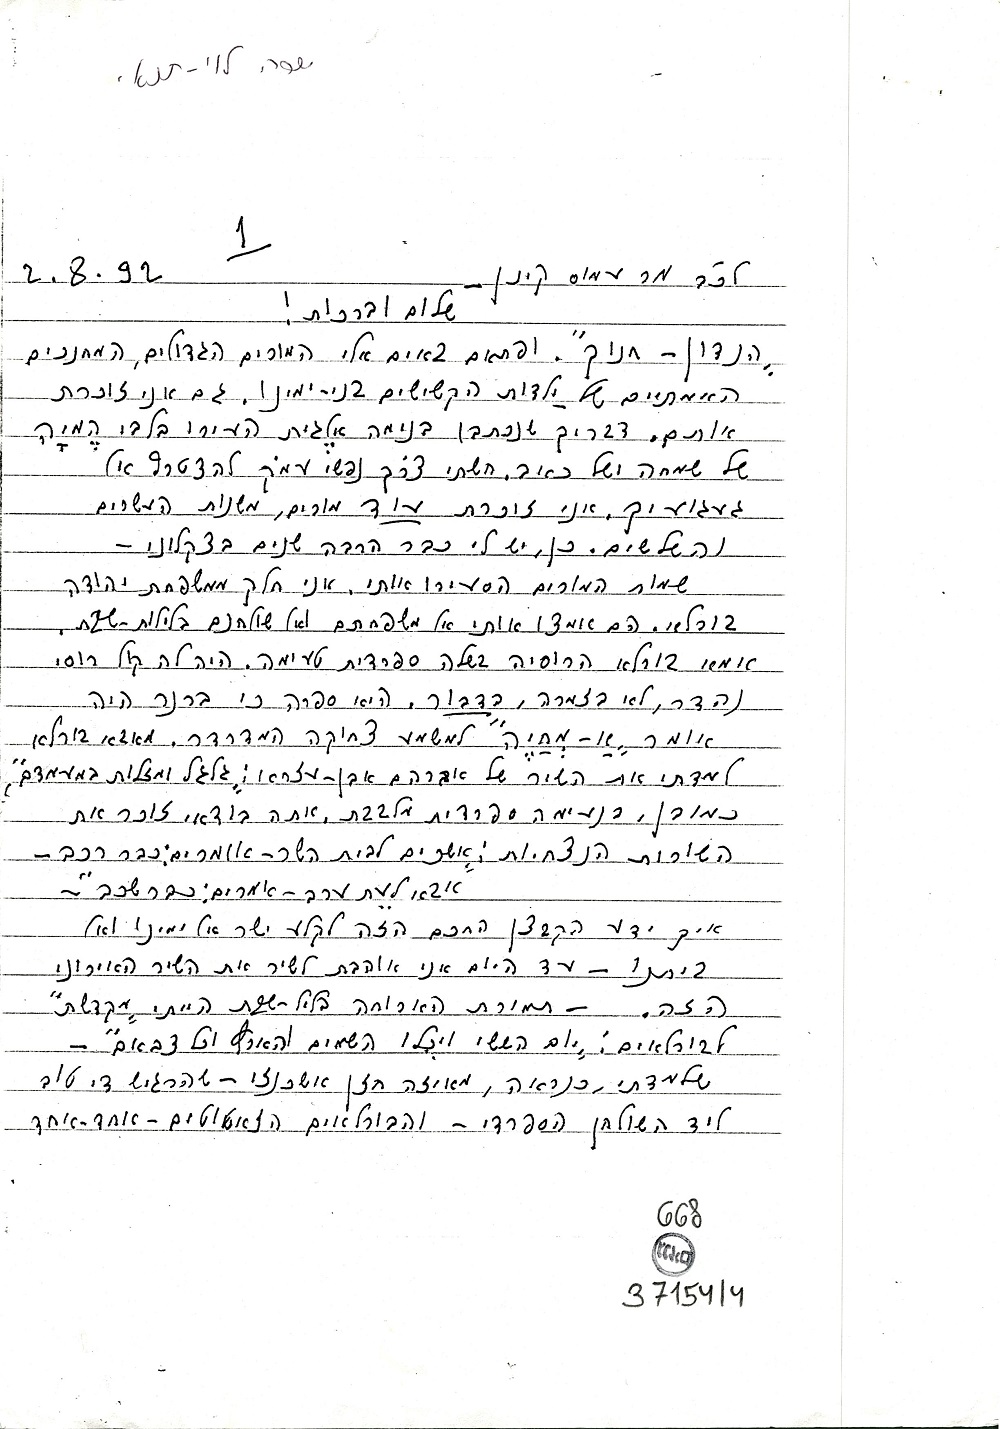 שרה לוי-תנאי
1
לכב' מר עמוס קינן – 2.8.92
שלום וברכות!
"הנדון – חנוך". ופתאום באים אלי המורים הגדולים, המחנכים
האימתיים של ילדות הקשישים בני-ימינו. גם אני זוכרת
אותם. דבריך שנכתבו בנימה אֶלגית העירו בלבי הֶמְיָה
של שמחה ושל כאיב. חשתי צֹרך נפשי עמֹק להצטרף אל
געגועיך. אני זוכרת עוד מורים, משנות העשרים
והשלשים. כן, יש לי כבר הרבה שנים בצקלוני –
שמות המורים הסעירו אותי. אני חלק ממשפחת יהודה
בורלא. הם אמצו אותי אל משפחתם ואל שולחנם בלילות-שבת.
אמא בורלא הרוסיה בשלה ספרדית טעימה. היה לה קול רוסי
נהדר, לא בזמרה, בדבור. היא ספרה כי ברנר היה
אומר "אַ – מְחַיֶה" למשמע צחוקה המדרדר. מאבא בורלא
למדתי את השיר של אברהם אבן-עזרא: "גלגל ומזלות במעמדם",
כמובן, בנעימה ספרדית מלבבת. אתה בודאי זוכר את
השורות הנצחיות: "אשכים לבית השר – אומרים: כבר רכב –
אבא לעֵת ערב – אומרים: כבר שכב" –
איך ידע הקבצן החכם הזה לקלע ישר אל ימינו ואל
ביתנו – עד היום אני אוהבת לשיר את השיר האירוני
הזה. – תמורת הארוחה בליל-שבת הייתי "מקדשת"
לבורלאים: "יום הששי ויכֻלו השמים והארץ וכל צבאם" –
שלמדתי, כנראה, מאיזה חזן אשכנזי – שהרגיש די טוב
ליד השולחן הספרדי – והבורלאים הזאטוטים – אחד-אחד
668
37154/4